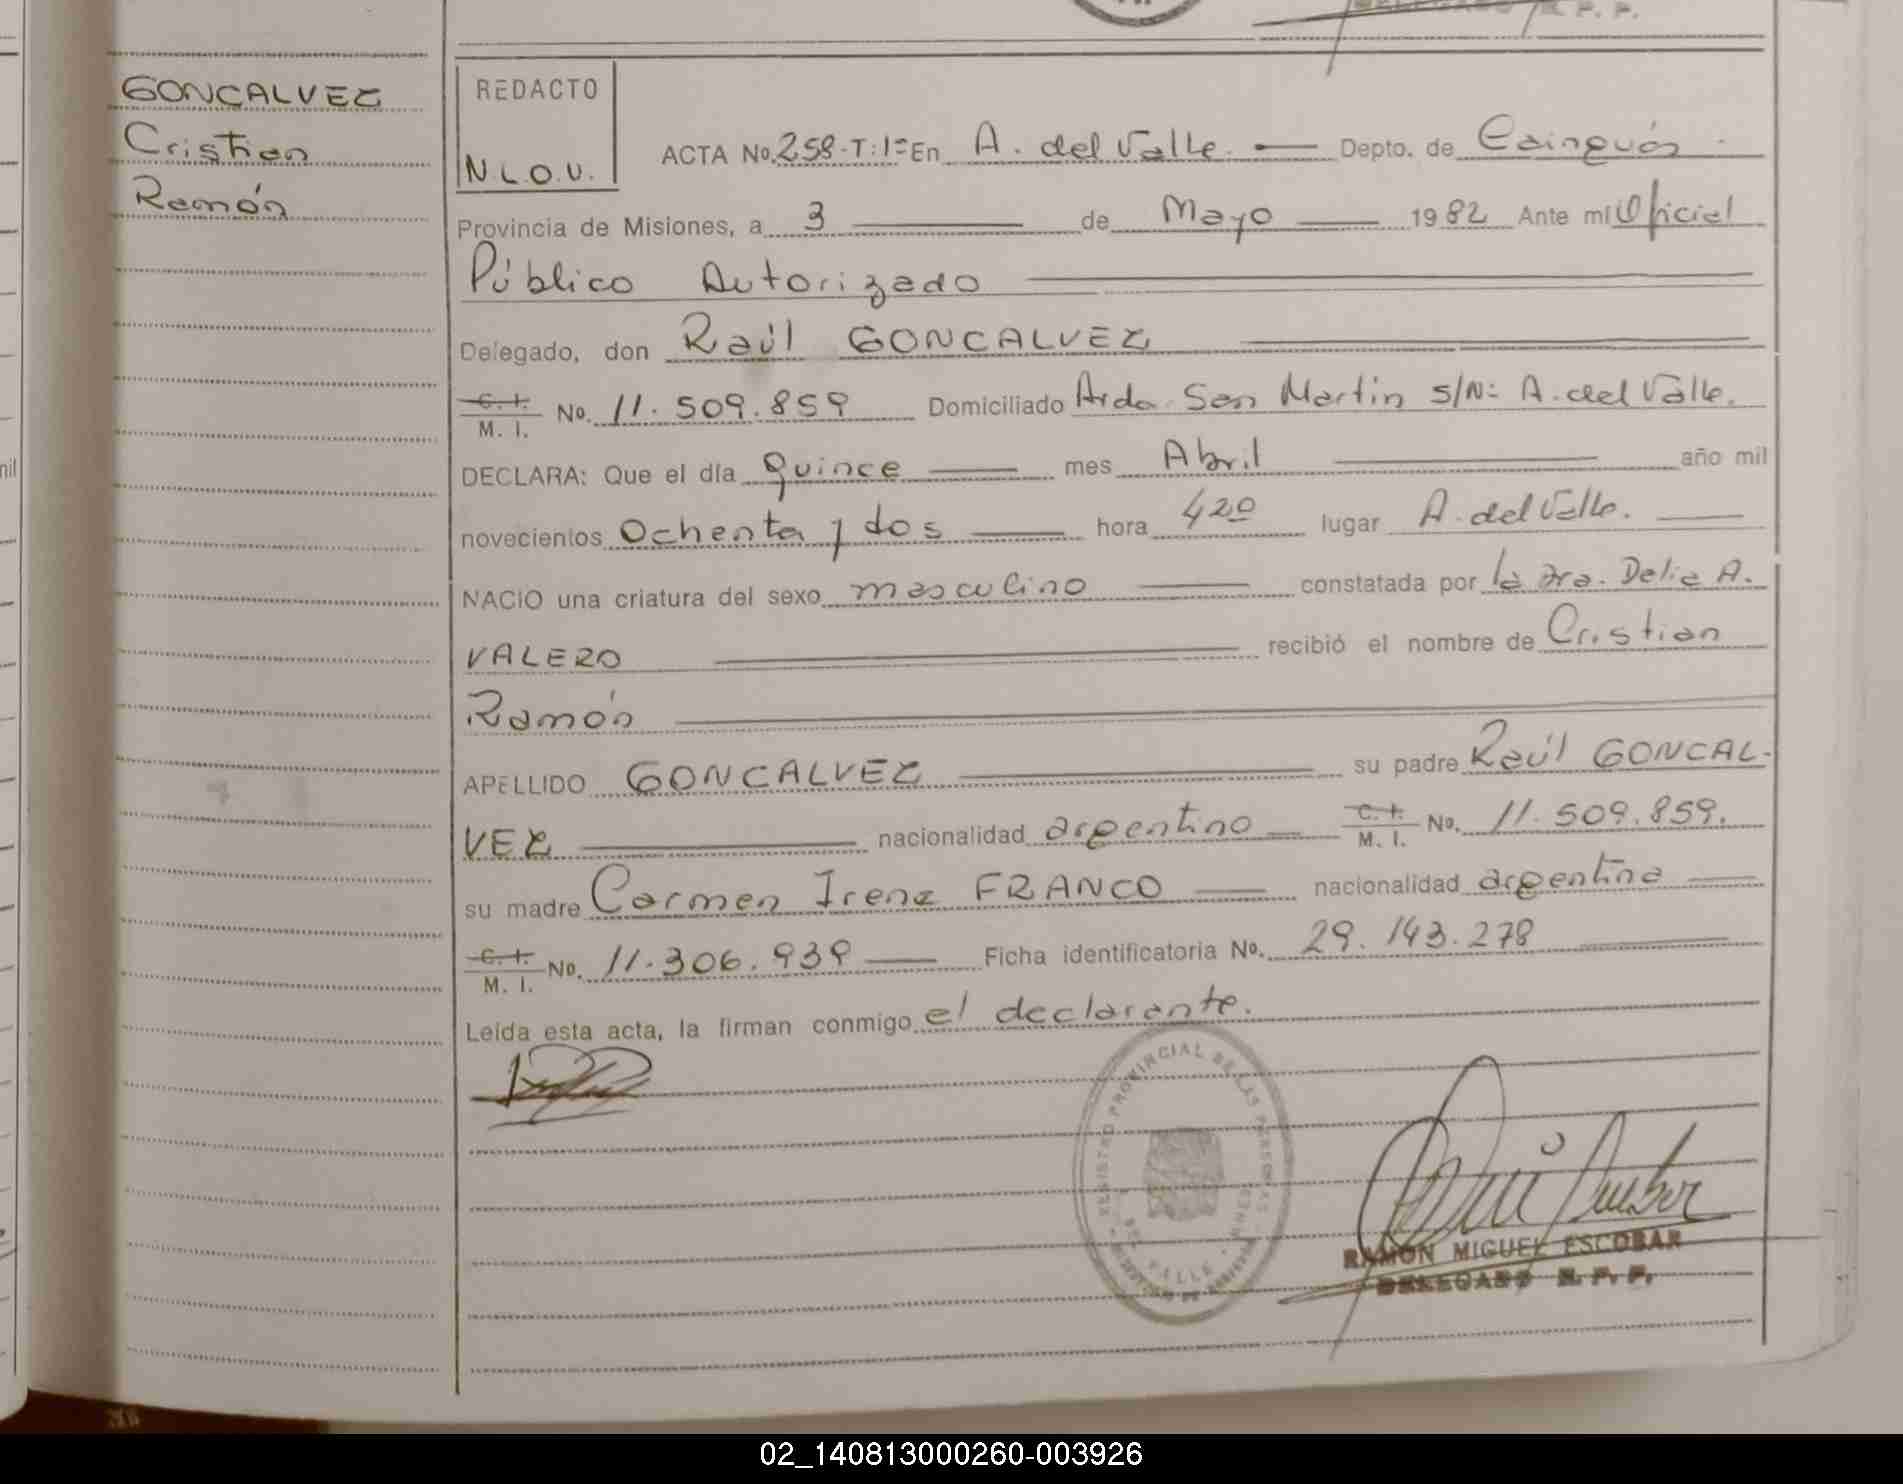 GONCALVEZ
Cristian
Ramón
REDACTO
N.L.O.V.
ACTA No. 258-T:1º En A. del Valle. — Depto. de Cainguás.
Provincia de Misiones, a 3 — de Mayo — 1982 Ante mi Oficial
Público Autorizado
Delegado, don Raúl GONCALVEZ
C. I. / M. I. No. 11.509.859 Domiciliado Avda. San Martin S/Nº A. del Valle.
DECLARA: Que el día quince — mes Abril — año mil
novecientos ochenta y dos — hora 420 lugar A. del Valle. —
NACIO una criatura del sexo masculino — constatada por la Dra. Delia A.
VALERO — recibió el nombre de Cristian
Ramón
APELLIDO GONCALVEZ — su padre Raúl GONCAL-
VEZ — nacionalidad argentino — C. I. / M. I. No. 11.509.859.
su madre Carmen Irene FRANCO — nacionalidad argentina —
C. I. / M. I. No. 11.306.939 — Ficha identificatoria No. 29.143.278
Leída esta acta, la firman conmigo el declarante.
REGISTRO PROVINCIAL DE LAS PERSONAS
DEL VALLE
RAMON MIGUEL ESCOBAR
DELEGADO R. P. P.
02_140813000260-003926